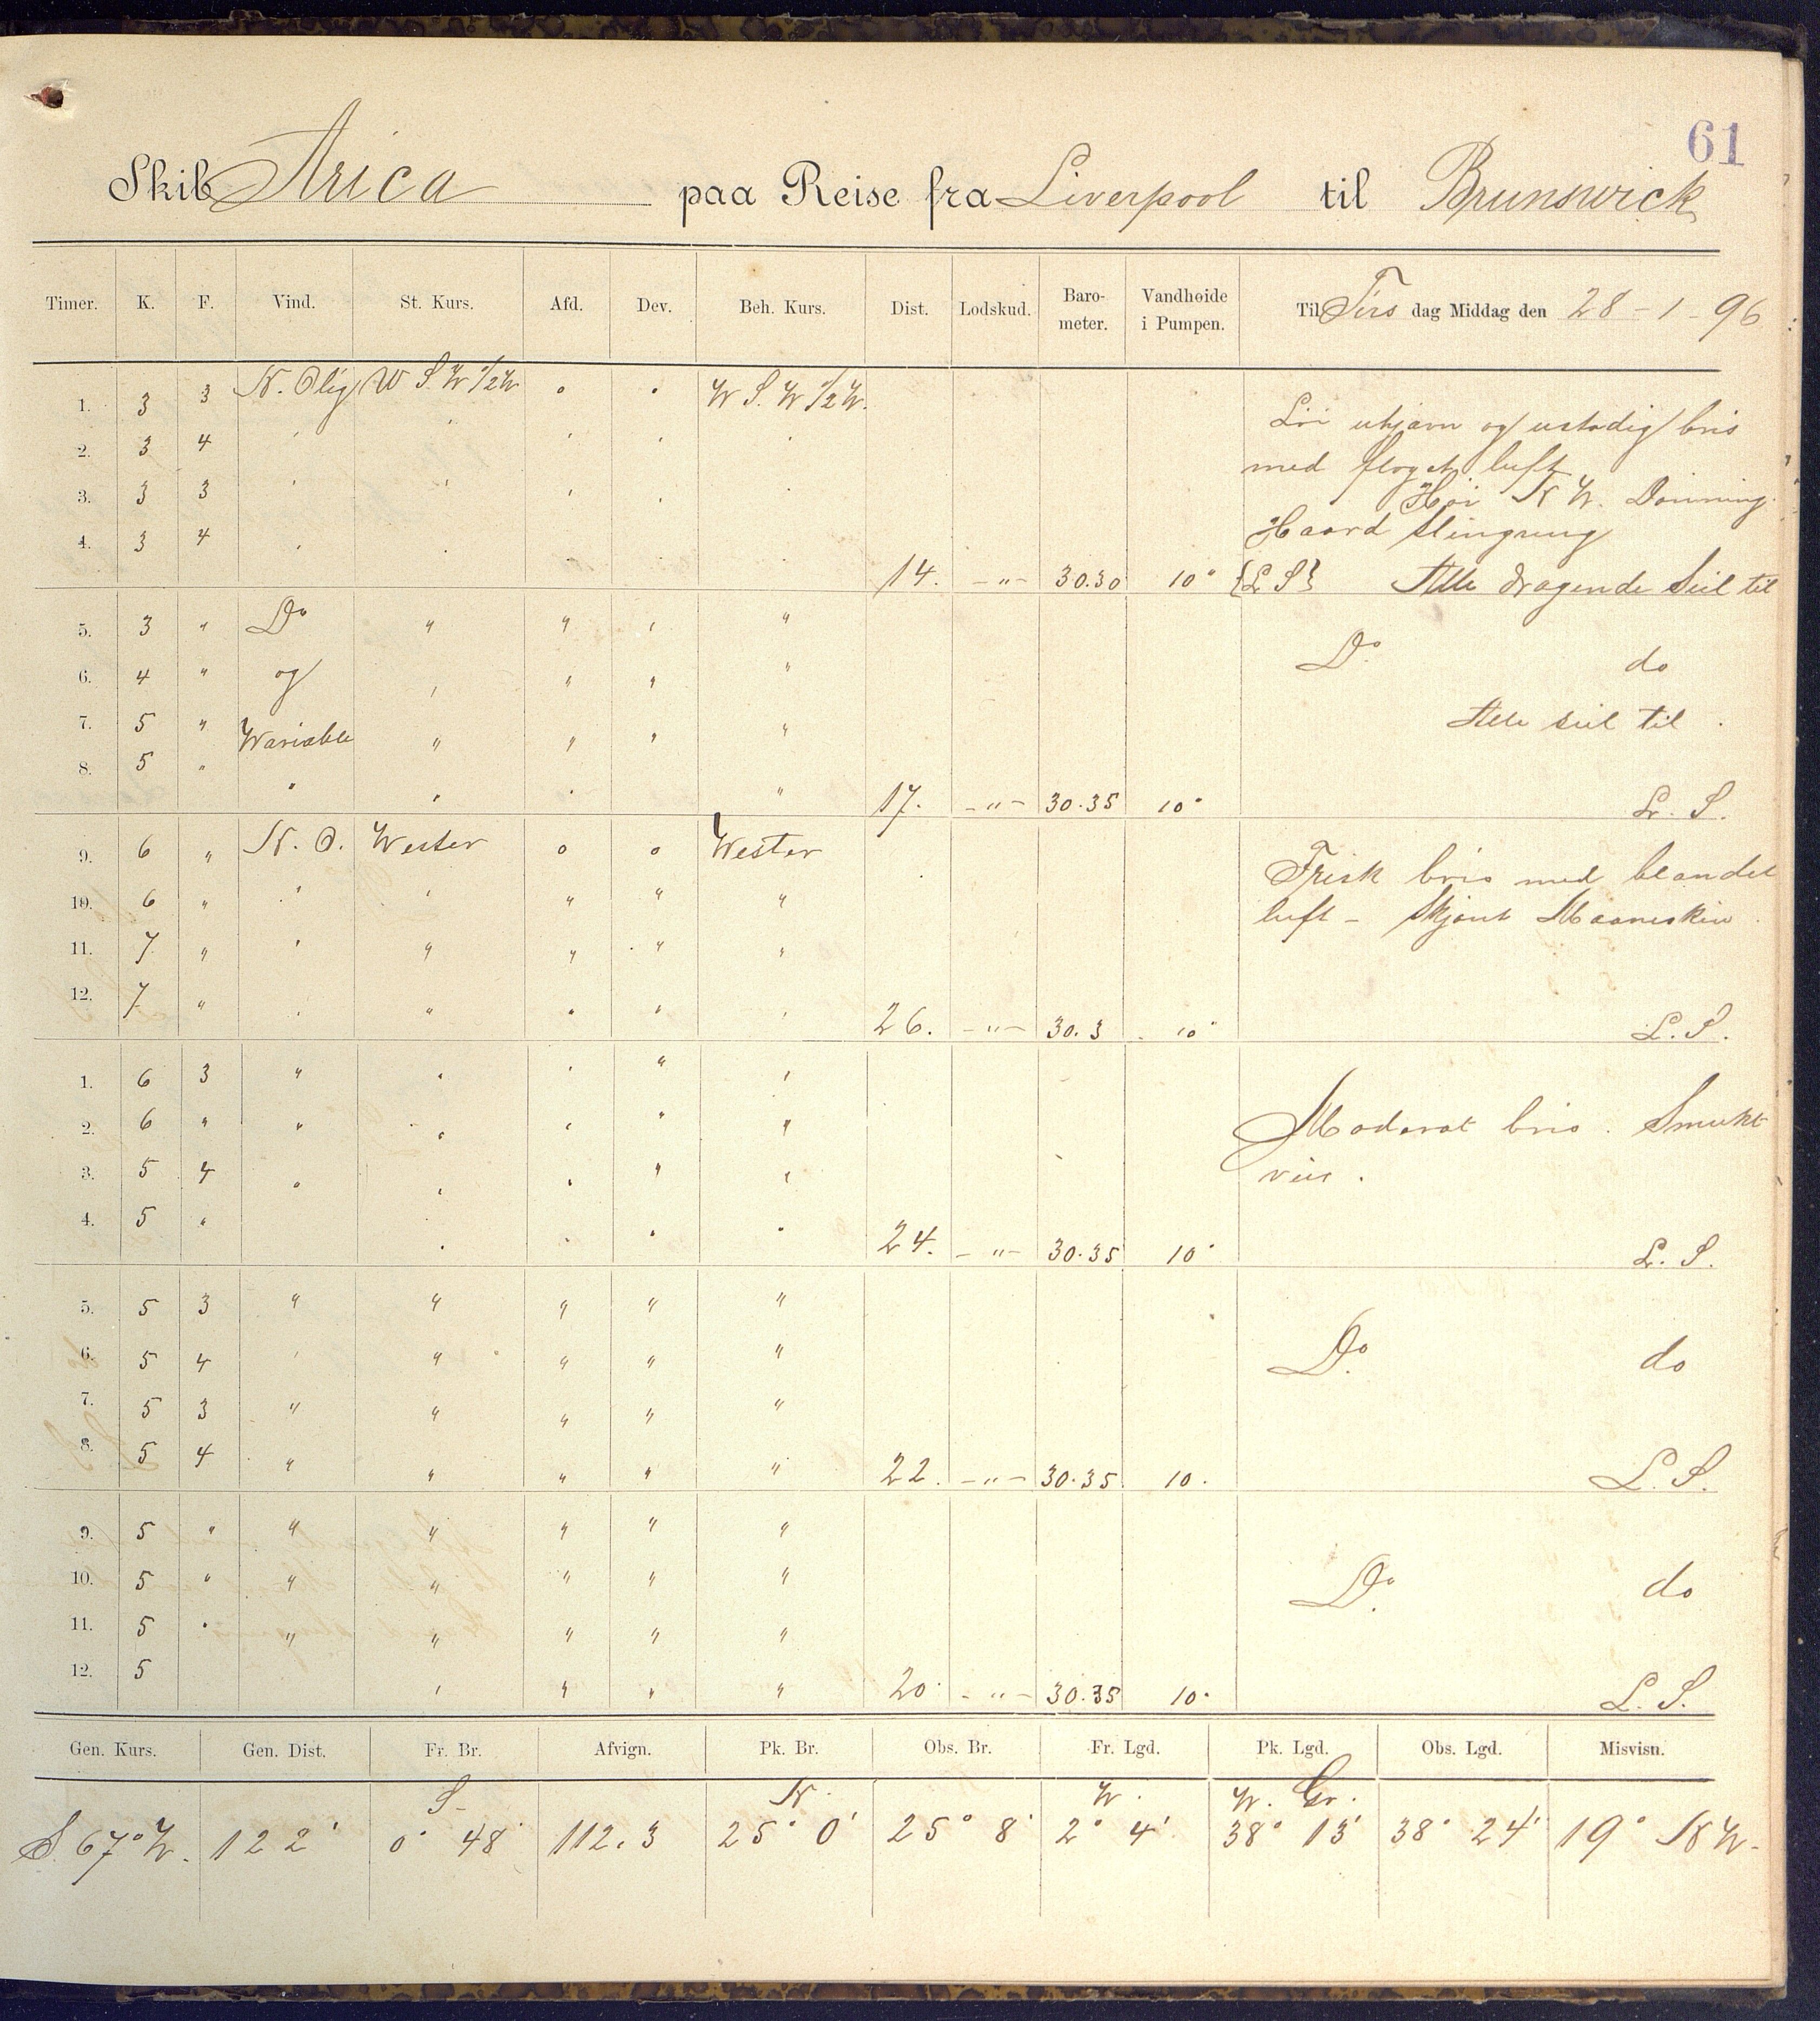 61
Skib Arica paa Reise fra Liverpool til Brunswick
Timer. K. F. Vind. St. Kurs. Afd. Dev. Beh. Kurs. Dist. Lodskud. Baro-meter. Vandhøide i Pumpen. Til Tirs dag Middag den 28 - 1 - 96
1. 3 3 N. Olig W S. W 1/2 W o o W S. W 1/2 W.
Lör ujævn og ustadig bris
2. 3 4 " " " " "
med flaget luft
3. 3 3 " " " " "
Høi N W. Dønning.
4. 3 4 " " " " "
Haard Slingring
14. -"- 30.30 10" {L S} Alle dragende Seil til
5. 3 " Do " " " "
Do. do
6. 4 " og " " " "
7. 5 " Wariable " " " "
Alle seil til.
8. 5 " " " " " 17. -"- 30.35 10" L. S.
9. 6 " N. O. Wester o o Wester
Frisk bris med blandet
10. 6 " " " " " "
luft - Skjønt Maaneskin.
11. 7 " " " " " "
12. 7 " " " " " " 26. -"- 30.3 10" L. S.
1. 6 3 " " " " "
2. 6 " " " " " "
Moderat bris. Smukt
3. 5 4 " " " " "
veir.
4. 5 " " " " " 24. -"- 30.35 10" L. S.
5. 5 3 " " " " "
6. 5 4 " " " " "
Do. do
7. 5 3 " " " " "
8. 5 4 " " " " " 22. -"- 30.35. 10. L. S.
9. 5 " " " " " "
10. 5 " " " " " "
Do. do
11. 5 " " " " " "
12. 5 " " " " 20. -"- 30.35 10. L. S.
Gen. Kurs. Gen. Dist. Fr. Br. Afvign. Pk. Br. Obs. Br. Fr. Lgd. Pk. Lgd. Obs. Lgd. Misvisn.
S. N. W. W. Gr.
S. 67° W. 122' 0° 48' 112.3 25° 0' 25° 8' 2° 4' 38° 13' 38° 24' 19° N W.